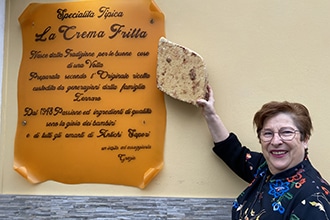 Specialità Tipica
La Crema Fritta
Nasce dalla Tradizione per le buone cose
di una Volta
Preparata secondo l'Originale ricetta
custodita da generazioni dalla famiglia
Zennaro
Dal 1948 Passione ed ingredienti di qualità
sono la gioia dei bambini
e di tutti gli amanti di Antichi Sapori
vi aspetto ad assaggiarla